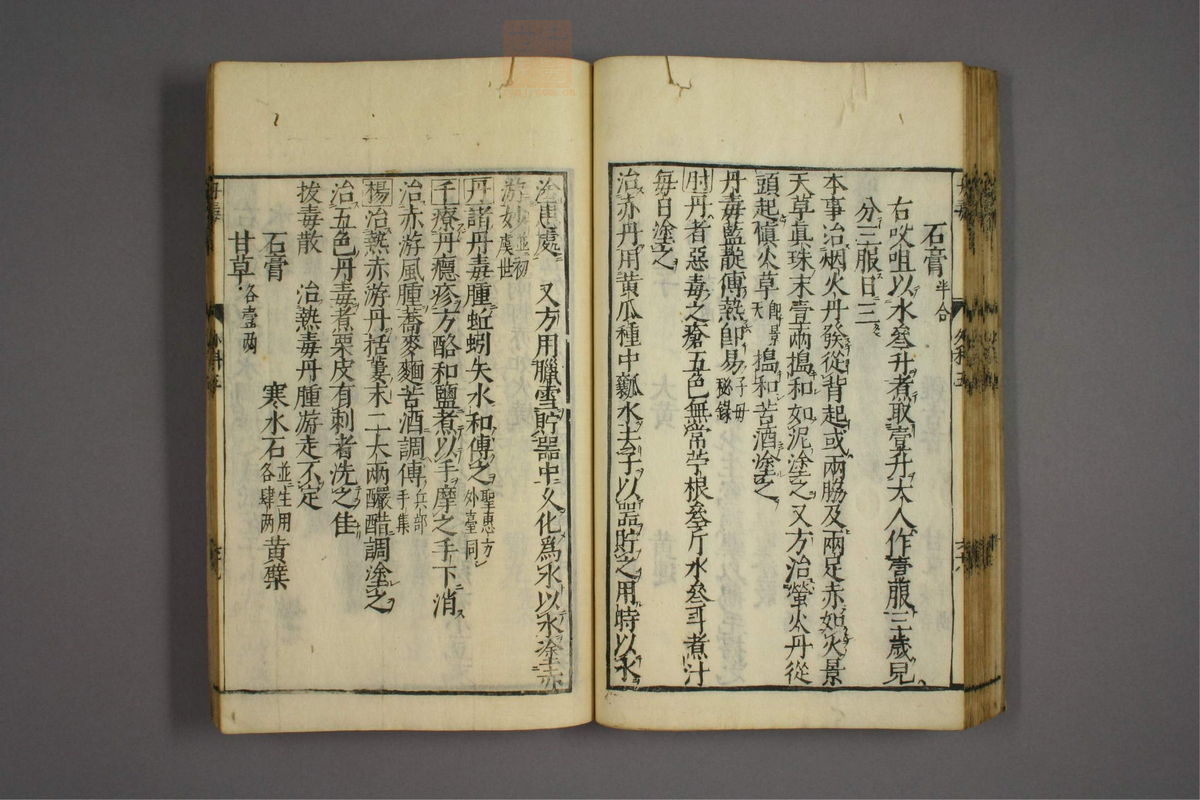 石膏半合
右㕮咀以水叁升煮取壹升大人作壹服三歲兒
分三服日三
本事治烟火丹發從背起或兩脇及兩足赤如火景
天草真珠末壹兩搗和如泥塗之又方治螢火丹從
頭起愼火草即景天搗和苦酒塗之
丹毒藍靛傅熱即易子母秘錄
肘丹者惡毒之瘡五色無常苧根叁斤水叁斗煮汁
每日塗之
治赤丹用黃瓜種中瓤水去子以器貯之用時以水
塗患處 又方用臘雪貯器中久化爲水以水塗赤
游妙並初虞世
丹諸丹毒腫蚯蚓矢水和傅之聖惠方外臺同
千療丹癮疹方酪和鹽煮以手摩之手下消
治赤游風腫蕎麥麵苦酒調傅兵部手集
楊治熱赤游丹栝蔞末二大兩釅醋調塗之
治五色丹毒煮栗皮有刺者洗之佳
拔毒散 治熱毒丹腫游走不定
石膏 寒水石並生用各肆兩 黃蘗
甘草各壹兩